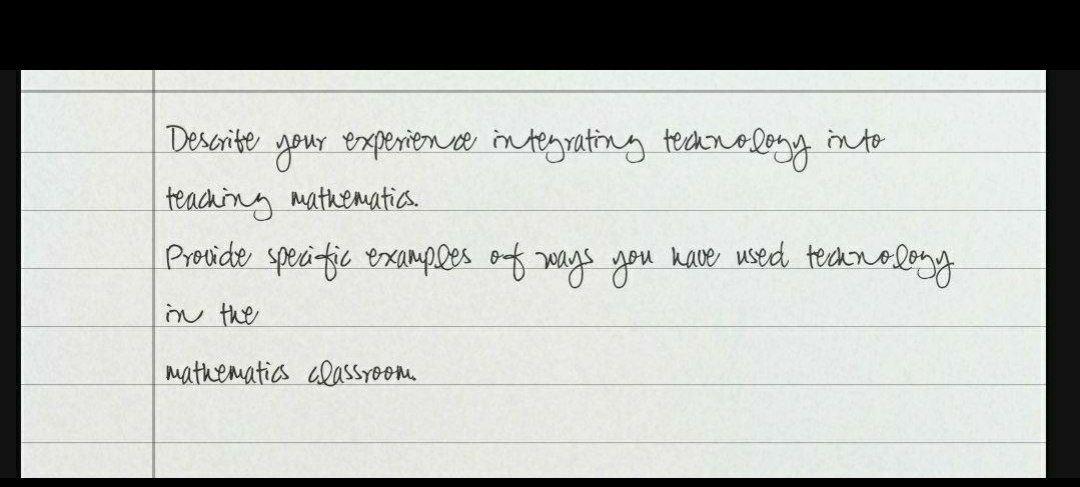 Describe your experience integrating technology into
teaching mathematics.
Provide specific examples of ways you have used technology
in the
mathematics classroom.